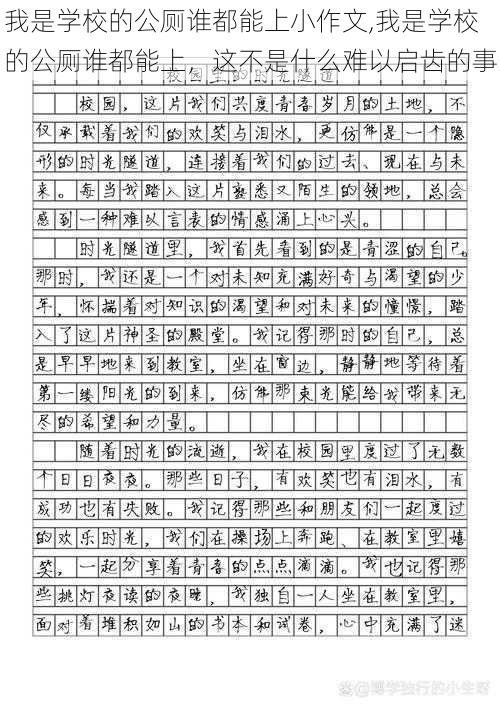 我是学校的公厕谁都能上小作文,我是学校
的公厕谁都能上，这不是什么难以启齿的事
校园里的时光隧道
校园，这片我们共度青春岁月的土地，不
仅承载着我们的欢笑与泪水，更仿佛是一个隐
形的时光隧道，连接着我们的过去、现在与未
来。每当我踏入这片熟悉又陌生的领地，总会
感到一种难以言表的情感涌上心头。
时光隧道里，我首先看到的是青涩的自己。
那时，我还是一个对未知充满好奇与渴望的少
年，怀揣着对知识的渴望和对未来的憧憬，踏
入了这片神圣的殿堂。我记得那时的自己，总
是早早地来到教室，坐在窗边，静静地等待着
第一缕阳光的到来，仿佛那束光能给我带来无
尽的希望和力量。
随着时光的流逝，我在校园里度过了无数
个日日夜夜。那些日子，有欢笑也有泪水，有
成功也有失败。我记得那些和朋友们一起度过
的欢乐时光，我们在操场上奔跑、在教室里嬉
笑，一起分享着青春的点点滴滴。我也记得那
些挑灯夜读的夜晚，我独自一人坐在教室里，
面对着堆积如山的书本和试卷，心中充满了迷
@博学独行的小生呀